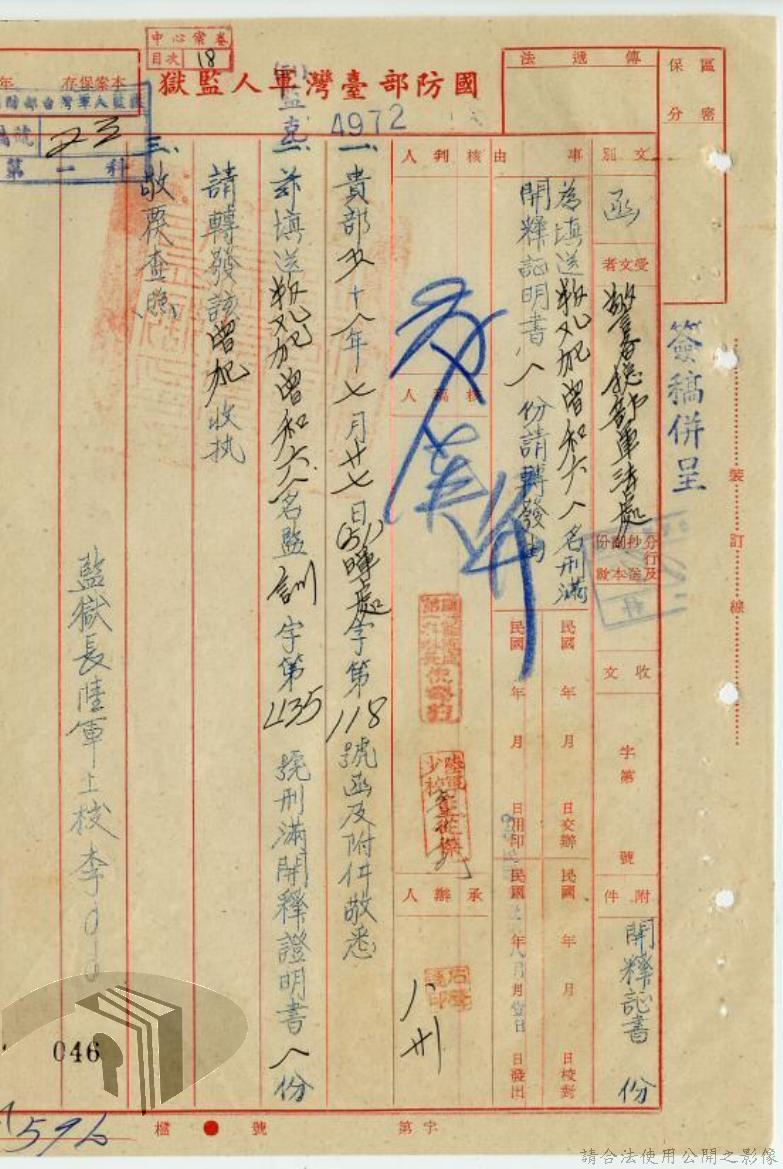 國防部臺灣軍人監獄
中心案卷
目次 18
本案保存 年
第一科
4972
傳遞法
區分
保密
簽稿併呈
裝訂線
文別
函
受文者
警備總部軍法處
分行及抄送
副本份數
收文
字第
號
附件
開釋証書 份
事由
為填送叛乱犯曾和六人名刑滿
開釋証明書八份請轉發由
民國 年 月 日交辦
民國 年 月 日校對
民國 年 月 日用印
民國 年 月 日發出
核判人
核稿人
承辦人
八 卅
一、貴部五十八年七月廿七日(51)暉處字第118號函及附件敬悉
二、茲填送叛乱犯曾和六人名監訓字第1135號刑滿開釋證明書八份
請轉發該曾犯收执
三、敬覆查照
監獄長陸軍上校李
046
596
檔號
字第
請合法使用公開之影像